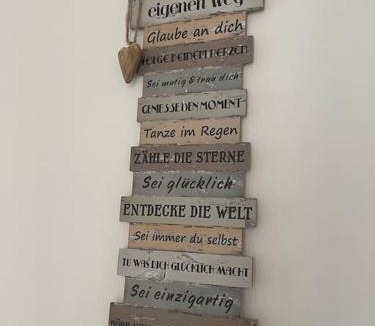 eigenen Weg
Glaube an dich
FOLGE DEINEM HERZEN
Sei mutig & trau dich
GENIESSE DEN MOMENT
Tanze im Regen
ZÄHLE DIE STERNE
Sei glücklich
ENTDECKE DIE WELT
Sei immer du selbst
TU WAS DICH GLÜCKLICH MACHT
Sei einzigartig